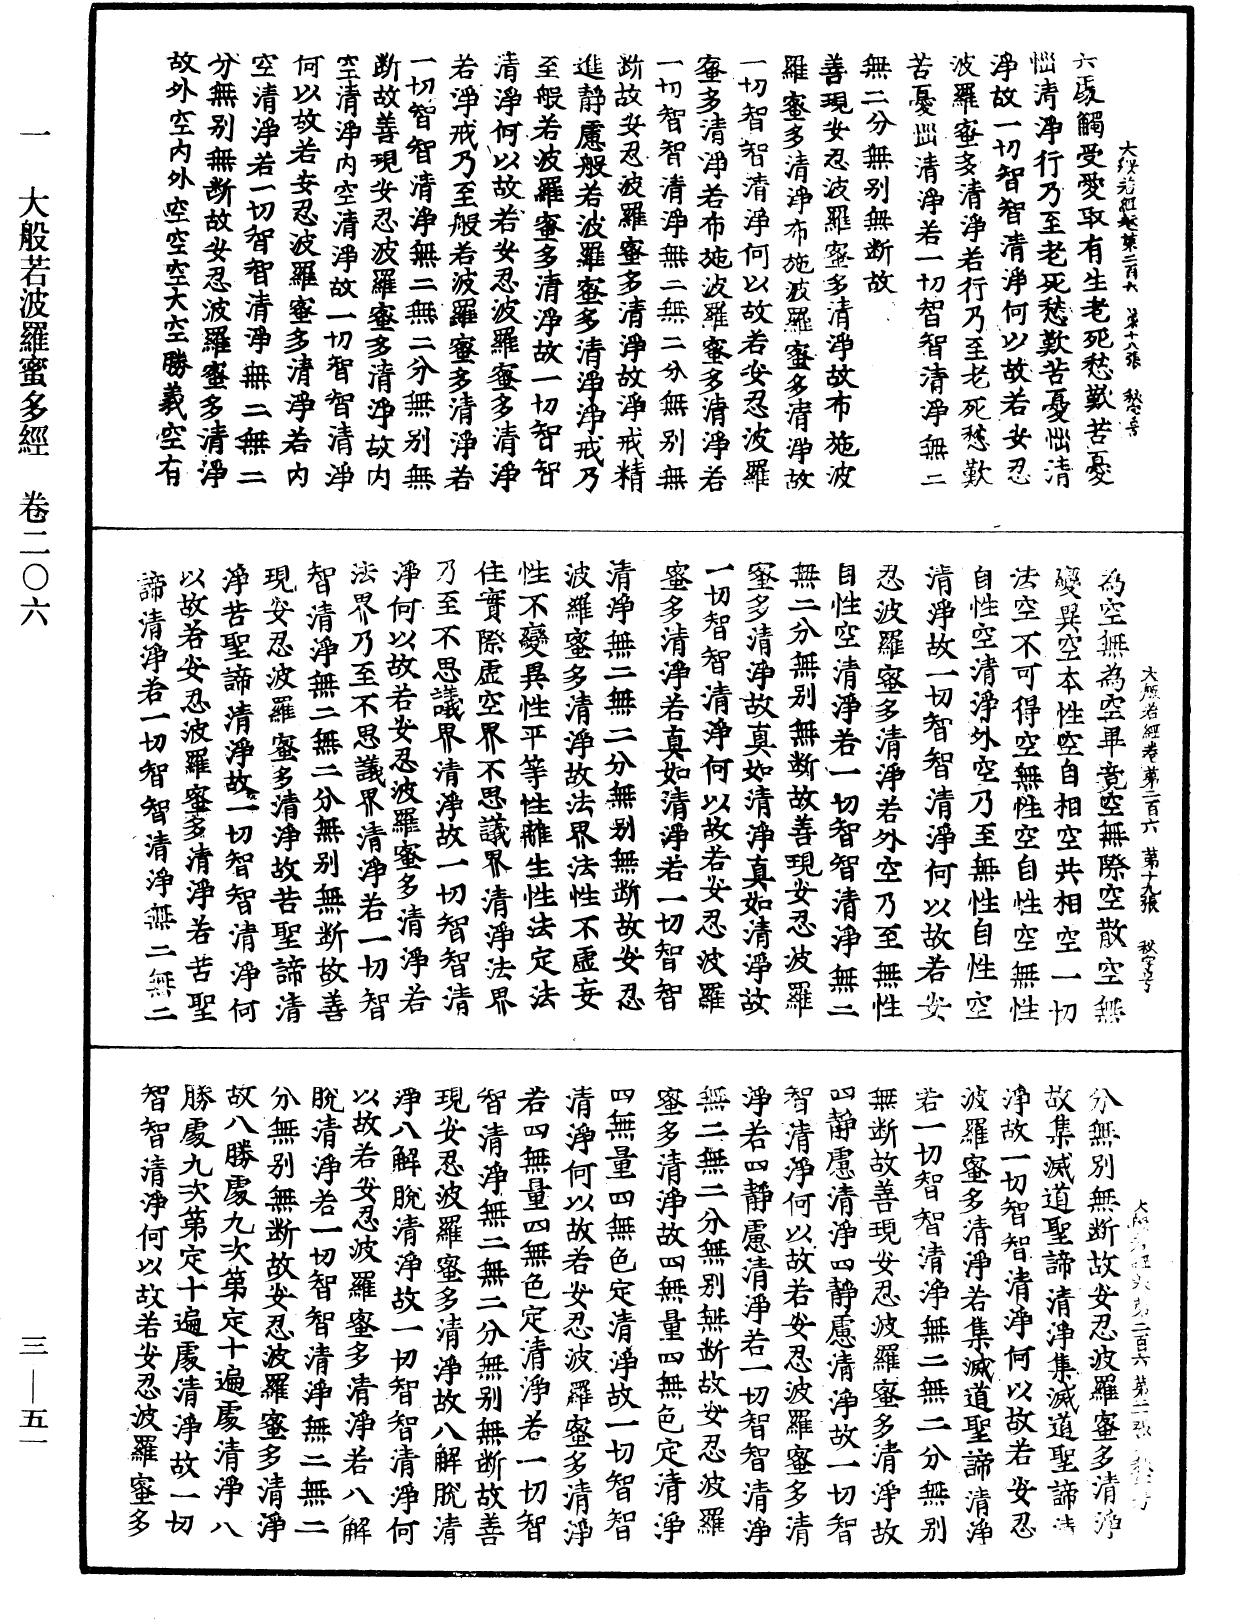 大般若經卷第二百六 第十八張 秋字号
六處觸受愛取有生老死愁歎苦憂
惱清淨行乃至老死愁歎苦憂惱清
淨故一切智智清淨何以故若安忍
波羅蜜多清淨若行乃至老死愁歎
苦憂惱清淨若一切智智清淨無二
無二分無別無斷故
善現安忍波羅蜜多清淨故布施波
羅蜜多清淨布施波羅蜜多清淨故
一切智智清淨何以故若安忍波羅
蜜多清淨若布施波羅蜜多清淨若
一切智智清淨無二無二分無別無
斷故安忍波羅蜜多清淨故淨戒精
進靜慮般若波羅蜜多清淨淨戒乃
至般若波羅蜜多清淨故一切智智
清淨何以故若安忍波羅蜜多清淨
若淨戒乃至般若波羅蜜多清淨若
一切智智清淨無二無二分無別無
斷故善現安忍波羅蜜多清淨故內
空清淨內空清淨故一切智智清淨
何以故若安忍波羅蜜多清淨若內
空清淨若一切智智清淨無二無二
分無別無斷故安忍波羅蜜多清淨
故外空內外空空空大空勝義空有
大般若經卷第二百六 第十九張 秋字号
為空無為空畢竟空無際空散空無
變異空本性空自相空共相空一切
法空不可得空無性空自性空無性
自性空清淨外空乃至無性自性空
清淨故一切智智清淨何以故若安
忍波羅蜜多清淨若外空乃至無性
自性空清淨若一切智智清淨無二
無二分無別無斷故善現安忍波羅
蜜多清淨故真如清淨真如清淨故
一切智智清淨何以故若安忍波羅
蜜多清淨若真如清淨若一切智智
清淨無二無二分無別無斷故安忍
波羅蜜多清淨故法界法性不虛妄
性不變異性平等性離生性法定法
住實際虛空界不思議界清淨法界
乃至不思議界清淨故一切智智清
淨何以故若安忍波羅蜜多清淨若
法界乃至不思議界清淨若一切智
智清淨無二無二分無別無斷故善
現安忍波羅蜜多清淨故苦聖諦清
淨苦聖諦清淨故一切智智清淨何
以故若安忍波羅蜜多清淨若苦聖
諦清淨若一切智智清淨無二無二
分無別無斷故安忍波羅蜜多清淨
故集滅道聖諦清淨集滅道聖諦清
淨故一切智智清淨何以故若安忍
波羅蜜多清淨若集滅道聖諦清淨
若一切智智清淨無二無二分無別
無斷故善現安忍波羅蜜多清淨故
四靜慮清淨四靜慮清淨故一切智
智清淨何以故若安忍波羅蜜多清
淨若四靜慮清淨若一切智智清淨
無二無二分無別無斷故安忍波羅
蜜多清淨故四無量四無色定清淨
四無量四無色定清淨故一切智智
清淨何以故若安忍波羅蜜多清淨
若四無量四無色定清淨若一切智
智清淨無二無二分無別無斷故善
現安忍波羅蜜多清淨故八解脫清
淨八解脫清淨故一切智智清淨何
以故若安忍波羅蜜多清淨若八解
脫清淨若一切智智清淨無二無二
分無別無斷故安忍波羅蜜多清淨
故八勝處九次第定十遍處清淨八
勝處九次第定十遍處清淨故一切
智智清淨何以故若安忍波羅蜜多
一 大般若波羅蜜多經 卷二〇六
三—五一